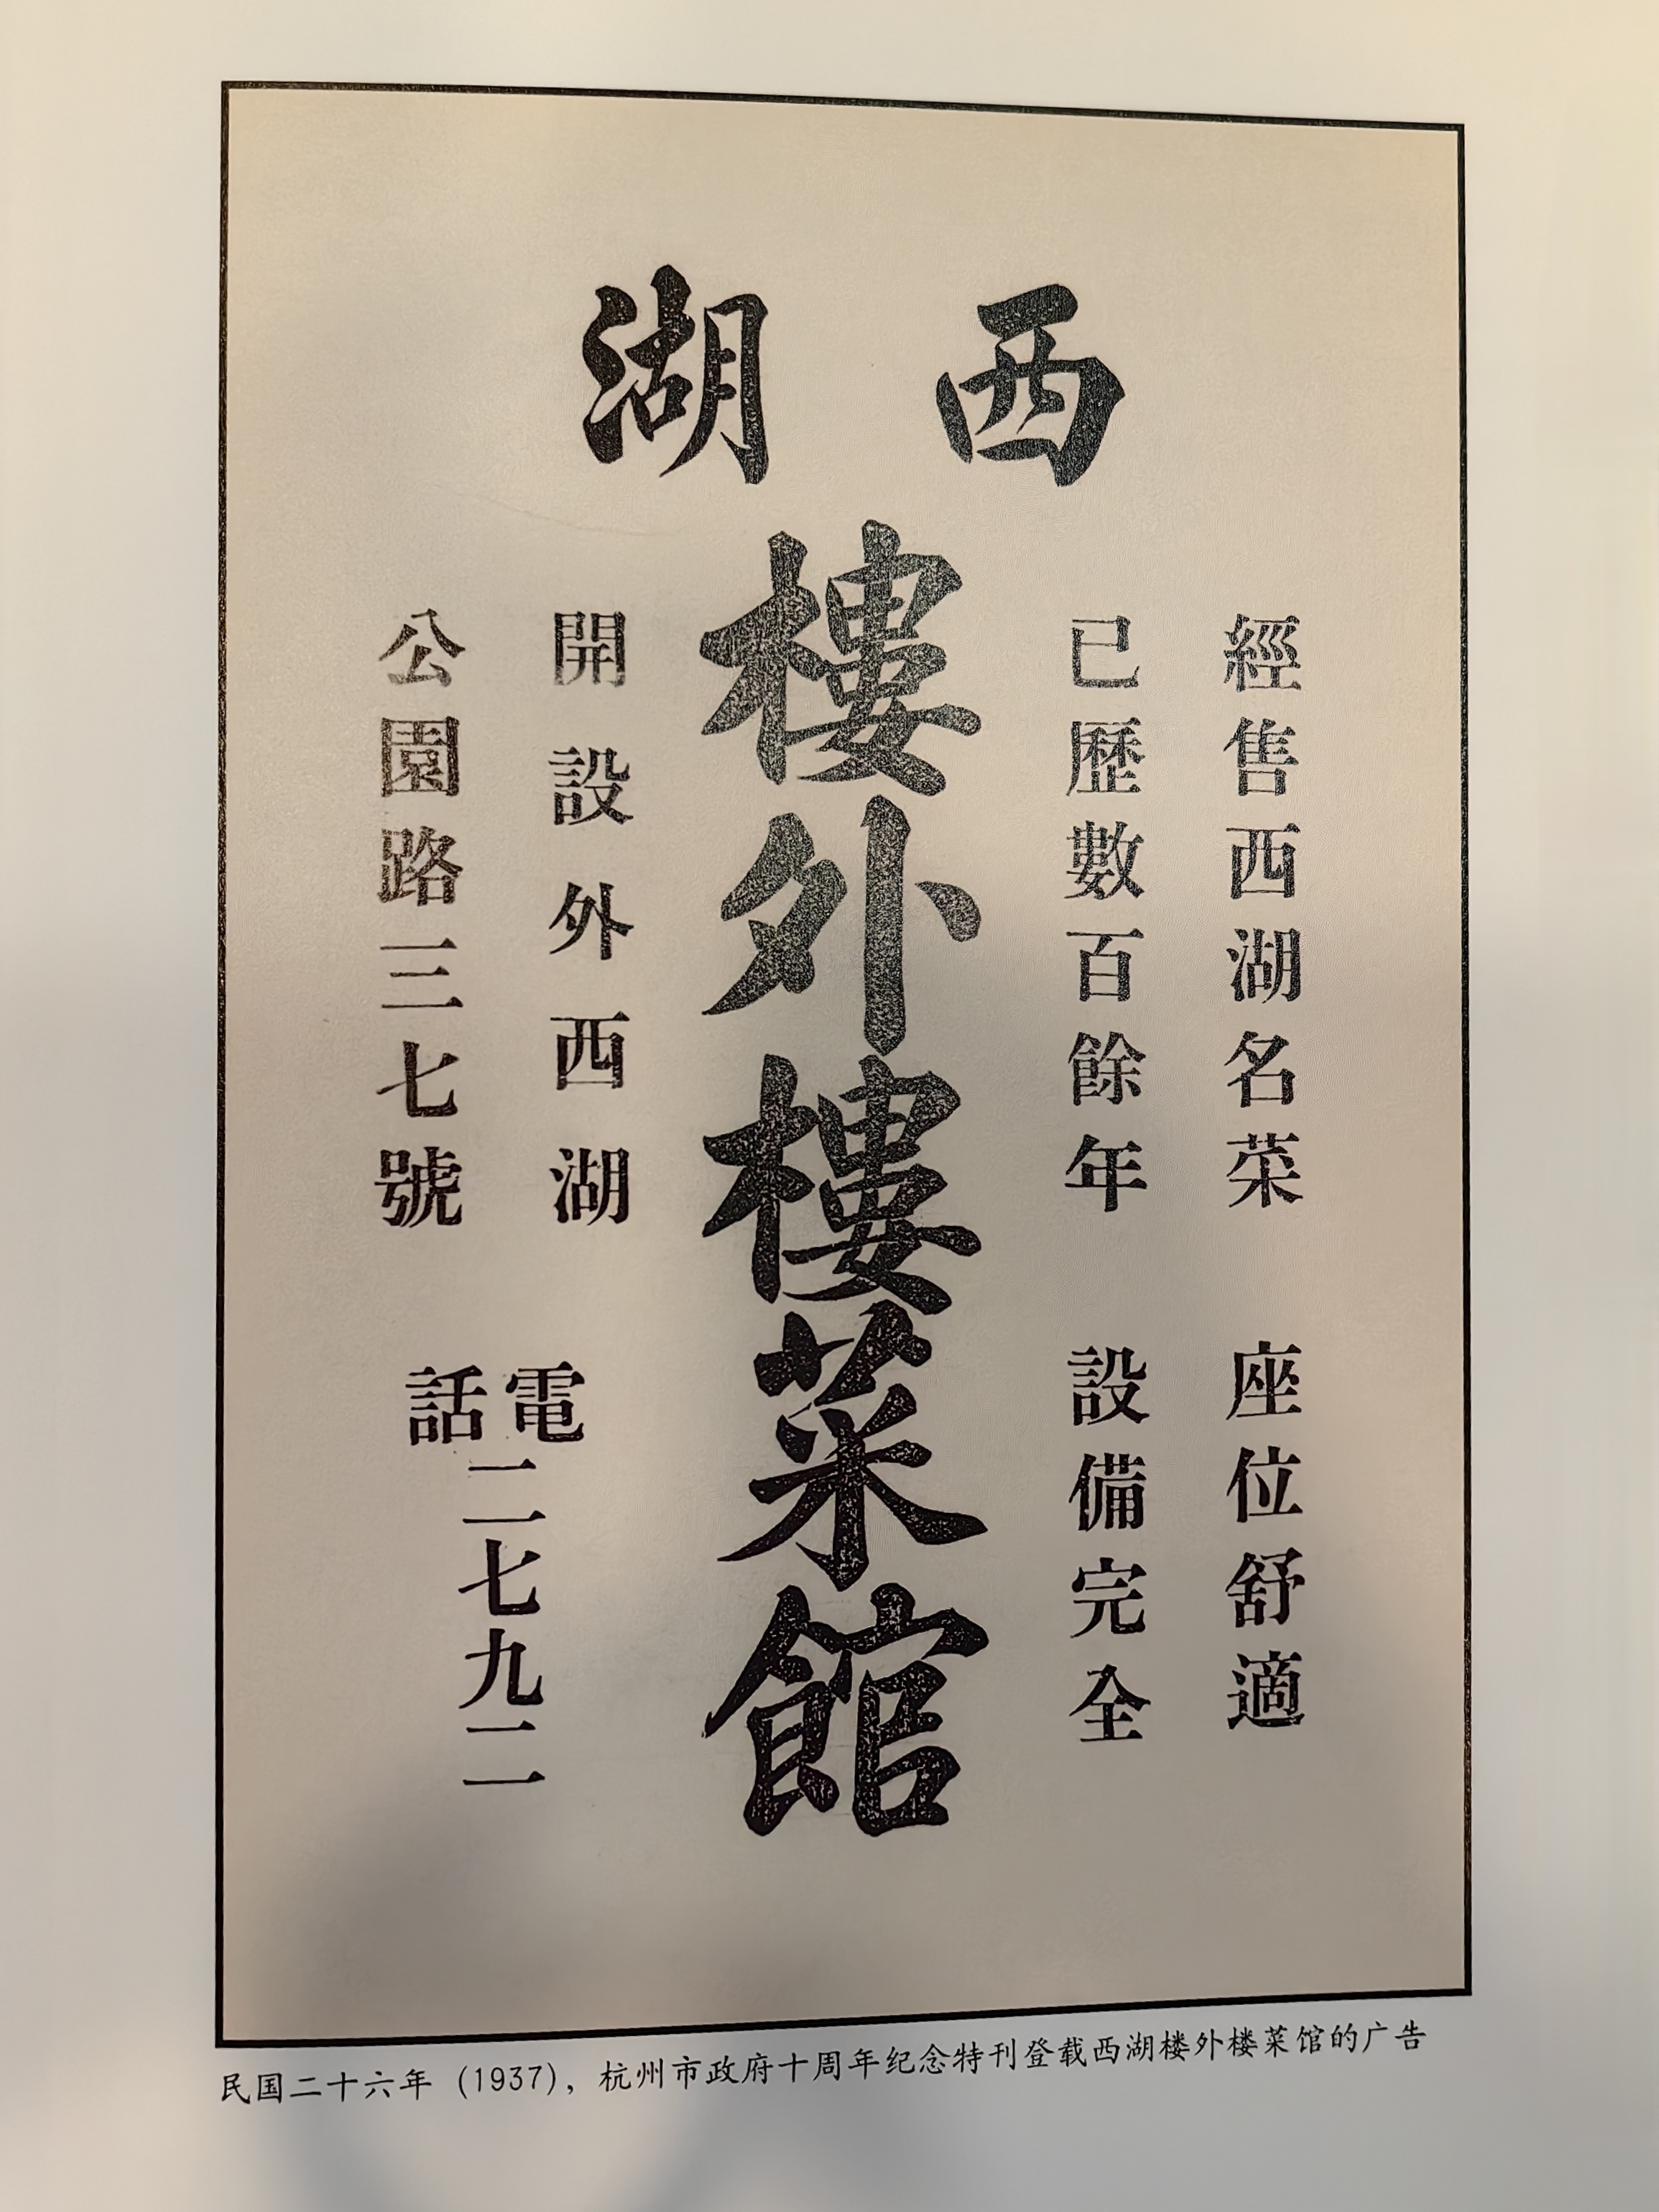 西湖
經售西湖名菜 座位舒適
已歷數百餘年 設備完全
樓外樓菜館
開設外西湖
公園路三七號
電話二七九二
民国二十六年（1937），杭州市政府十周年纪念特刊登载西湖楼外楼菜馆的广告